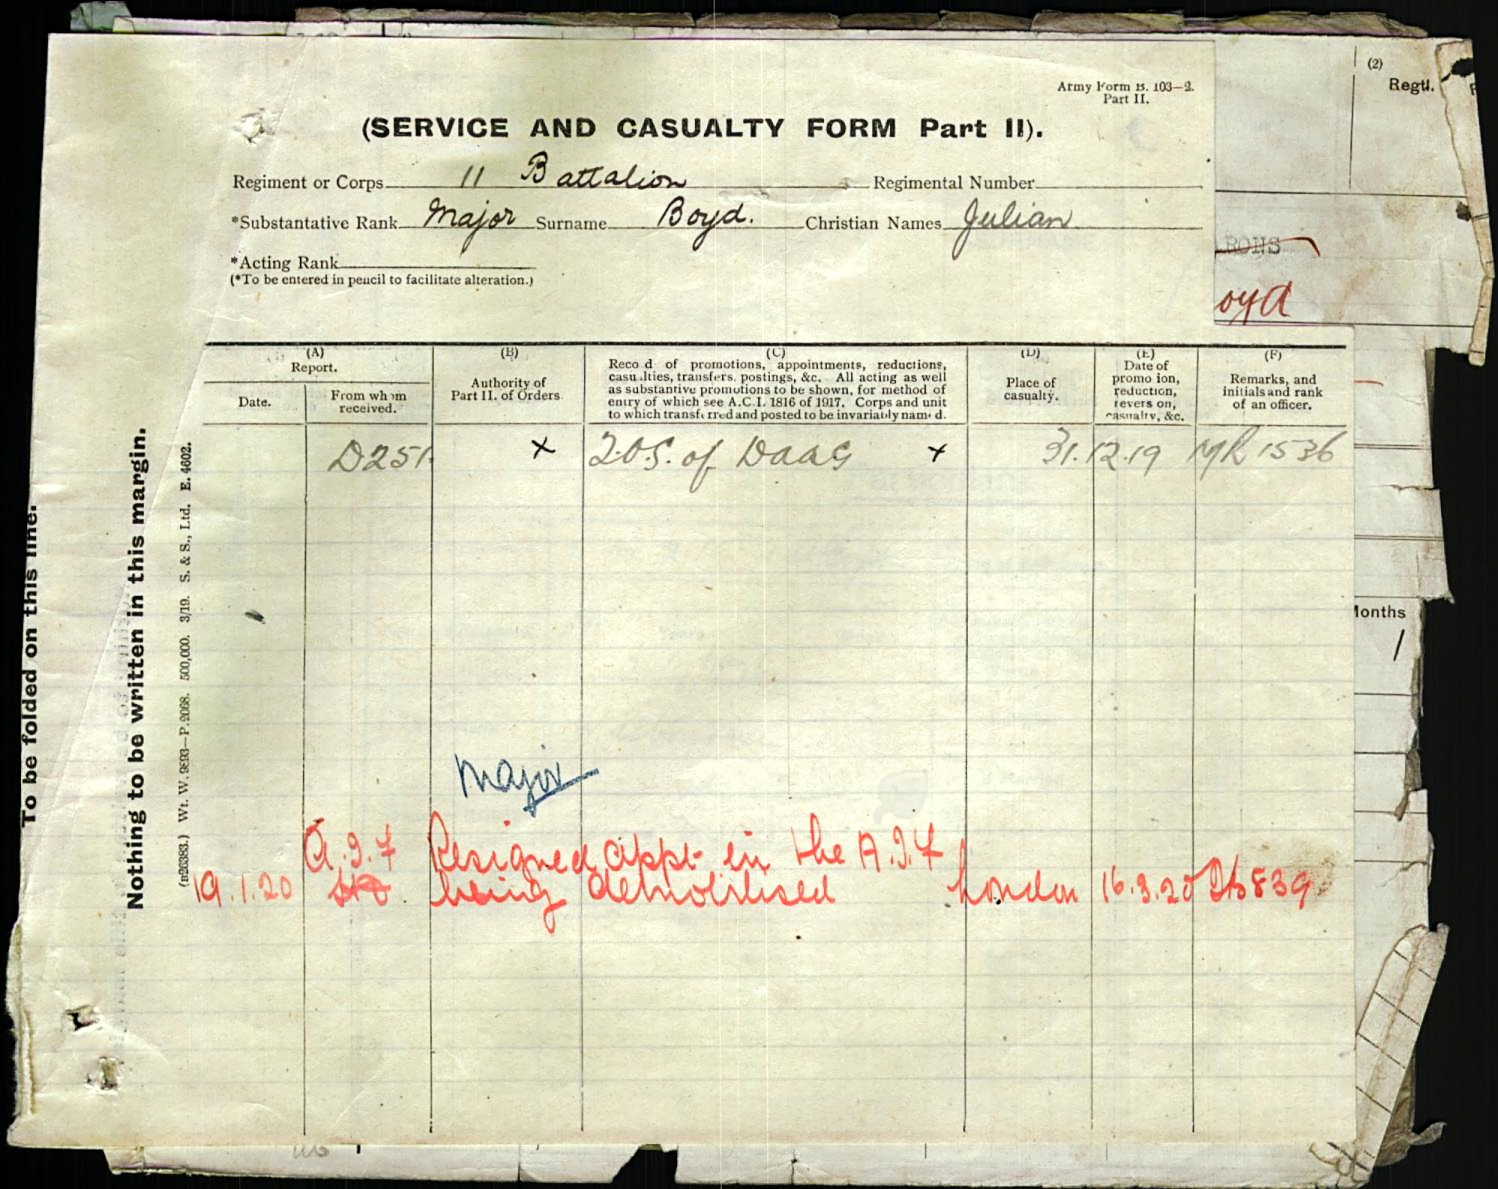 (2)
Regtl.
Army Form B. 103—2.
Part II.
(SERVICE AND CASUALTY FORM Part II).
Regiment or Corps 11 Battalion Regimental Number
*Substantative Rank Major Surname Boyd. Christian Names Julian
RONS
*Acting Rank
(*To be entered in pencil to facilitate alteration.)
oyd
(A)
Report.
Date.
From whom
received.
(B)
Authority of
Part II. of Orders
(C)
Reco d of promotions, appointments, reductions,
casu lties, transfers, postings, &c. All acting as well
as substantive promotions to be shown, for method of
entry of which see A.C.I. 1816 of 1917. Corps and unit
to which transf rred and posted to be invariably nam d.
(D)
Place of
casualty.
(E)
Date of
promo ion,
reduction,
revers on,
casualty, &c.
(F)
Remarks, and
initials and rank
of an officer.
D251 x 2.O.S. of DAAG x 31.12.19 MR 1536
Months
1
Major
A.I.F Resigned appt in the A.I.F
19.1.20 being demobilised London 16.3.20 839
To be folded on this line.
Nothing to be written in this margin.
(B26383.) Wt. W. 9893—P. 2068. 500,000. 3/19. S. & S., Ltd. E. 4602.